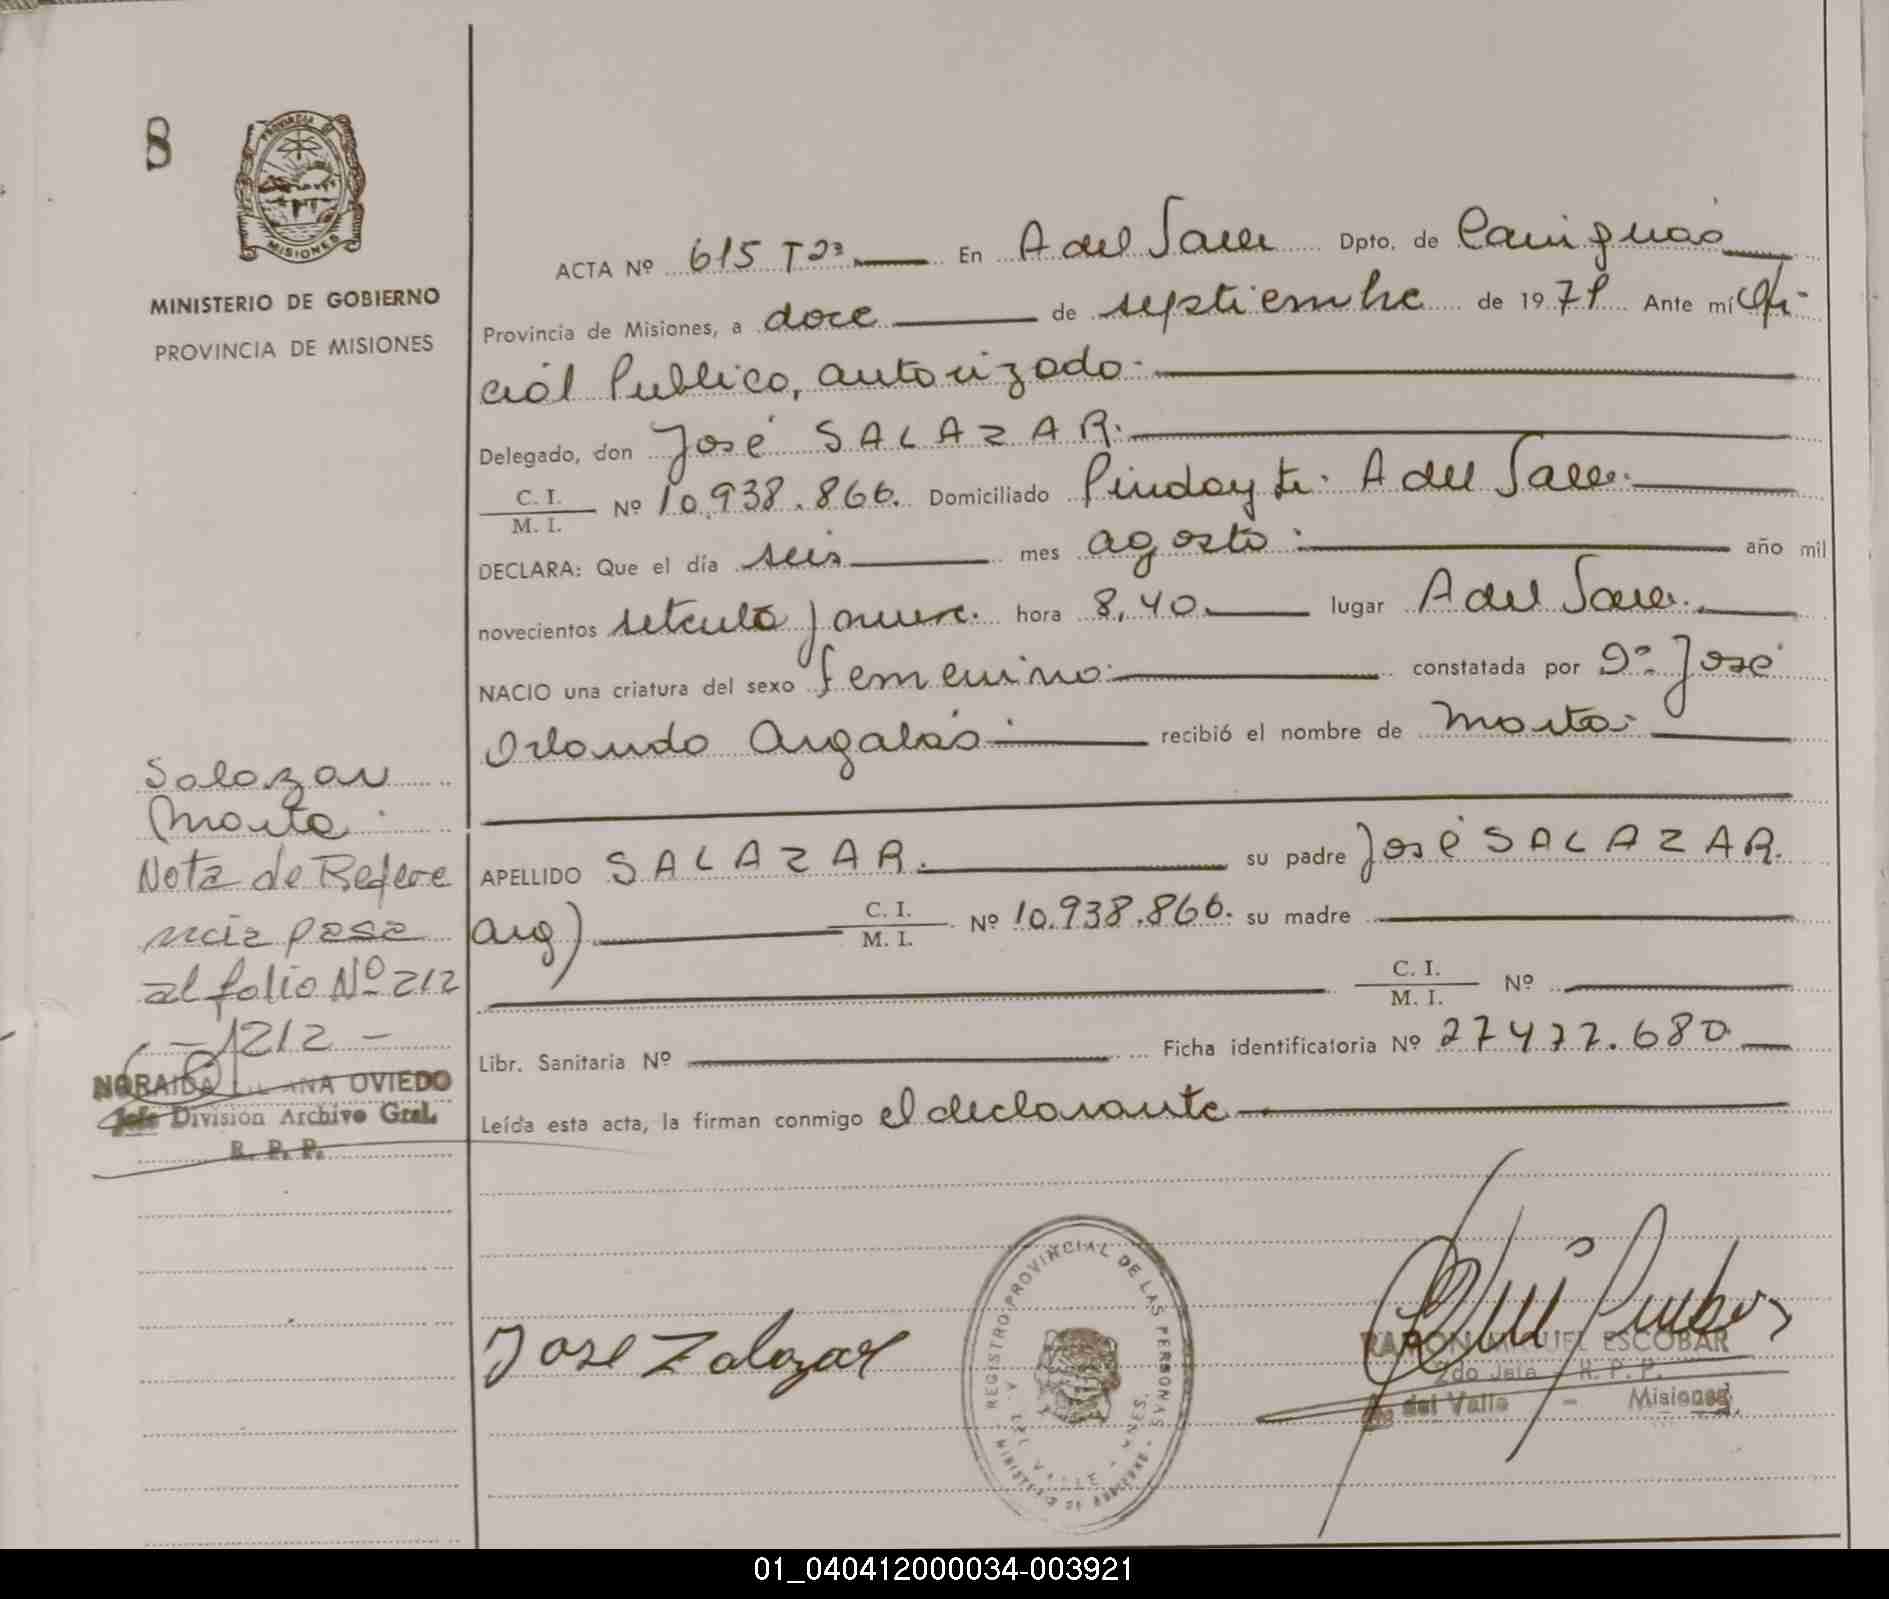 8
PROVINCIA DE
MISIONES
MINISTERIO DE GOBIERNO
PROVINCIA DE MISIONES
ACTA Nº 615 T2º En A del Valle Dpto. de Cainguás
Provincia de Misiones, a doce de septiembre de 1979 Ante mí Ofi-
cial Publico, autorizado.
Delegado, don José SALAZAR.
C. I.
M. I. Nº 10.938.866. Domiciliado Pindayti. A del Valle.
DECLARA: Que el día seis mes agosto. año mil
novecientos setenta y nueve. hora 8,40 lugar A del Valle.
NACIO una criatura del sexo femenino. constatada por Dº. José
Orlando Argalás recibió el nombre de Marta.
APELLIDO SALAZAR. su padre José SALAZAR.
Arg) C. I.
M. I. Nº 10.938.866. su madre
C. I.
M. I. Nº
Libr. Sanitaria Nº Ficha identificatoria Nº 27477.680
Leída esta acta, la firman conmigo el declarante
Salazar
Marta.
Nota de Refere
ncia pasa
al folio Nº 212
- 212 -
NORAIDA LILIANA OVIEDO
Jefe División Archivo Gral.
R. P. P.
Jose Zalazar
REGISTRO PROVINCIAL DE LAS PERSONAS
RAMON MIGUEL ESCOBAR
2do Jefe R. P. P.
A. del Valle - Misiones.
01_040412000034-003921